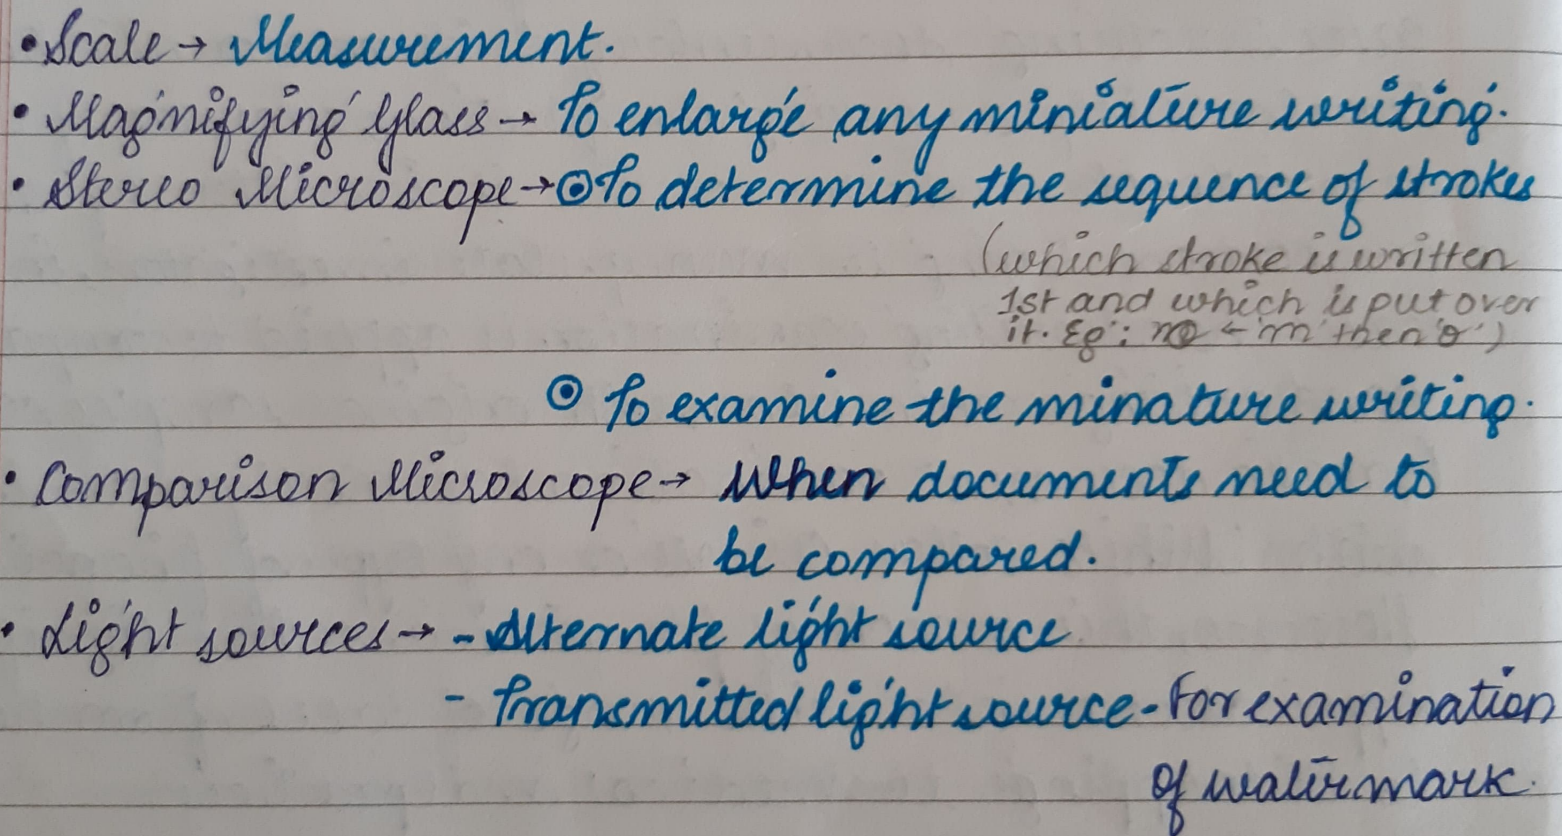 • Scale → Measurement.
• Magnifying Glass → To enlarge any miniature writing.
• Stereo Microscope → ⊙ To determine the sequence of strokes
(which stroke is written
1st and which is put over
it. Eg: ← 'm' then 'o')
⊙ To examine the minature writing.
• Comparison Microscope → When documents need to
be compared.
• Light sources → - Alternate light source
- Transmitted light source - For examination
of watermark.